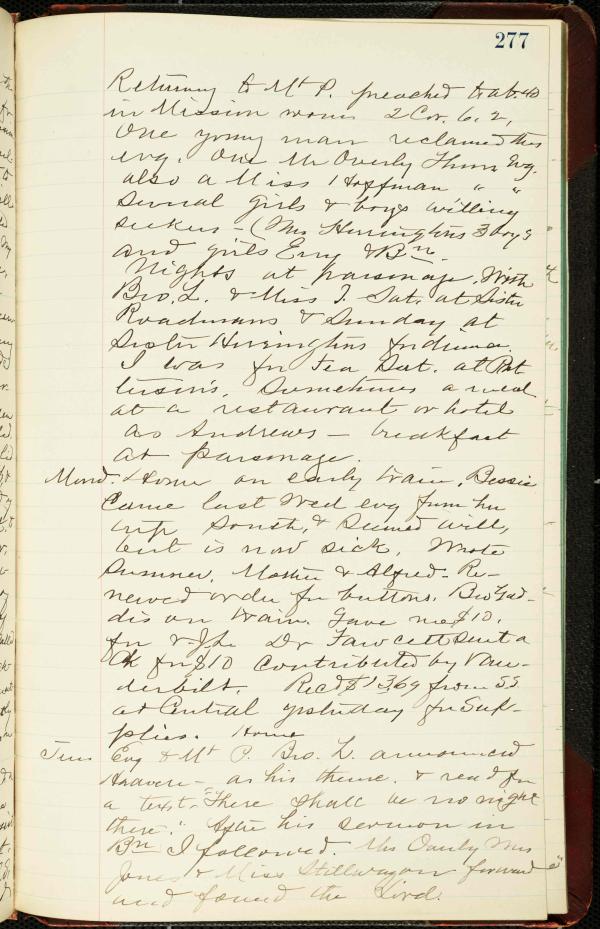 277
Returning to Mt P. preached to ab. 40
in Mission rooms 2 Cor. 6. 2,
One young man reclaimed this
evg. One Mr Overly Thurs Evg.
also a Miss Hoffman " "
several girls & boys willing
seekers - (Mrs Herringtons 3 boys
and girls Evry & Bn.
Nights at parsonage. With
Bro. L. & Miss J. Sat. at Sister
Roadmans & Sunday at
Sister Herringtons for dinner.
I was for Tea Sat. at Pat
terson's. Sometimes a meal
at a restaurant or hotel
as Andrews - breakfast
at parsonage.
Mond. Home on early train. Bessie
came last Wed evg from her
trip South, & seemed well,
but is now sick. Wrote
Sumner, Mother & Alfred. Re-
newed order for buttons. Bro Gad-
dis on train. Gave me $10.
for Dr Fawcett sent a
Ck for $10 contributed by Van-
derbilt. Recd $13,69 from S.S.
at Central yesterday for Sup-
plies. Home
Tues Evg & Mt P. Bro. L. announced
Heaven - as his theme. & read for
a text "There shall be no night
there." After his sermon in
Bn I followed. Mrs Mrs
Jones & Miss Stillwagon forward
and found the Lord.